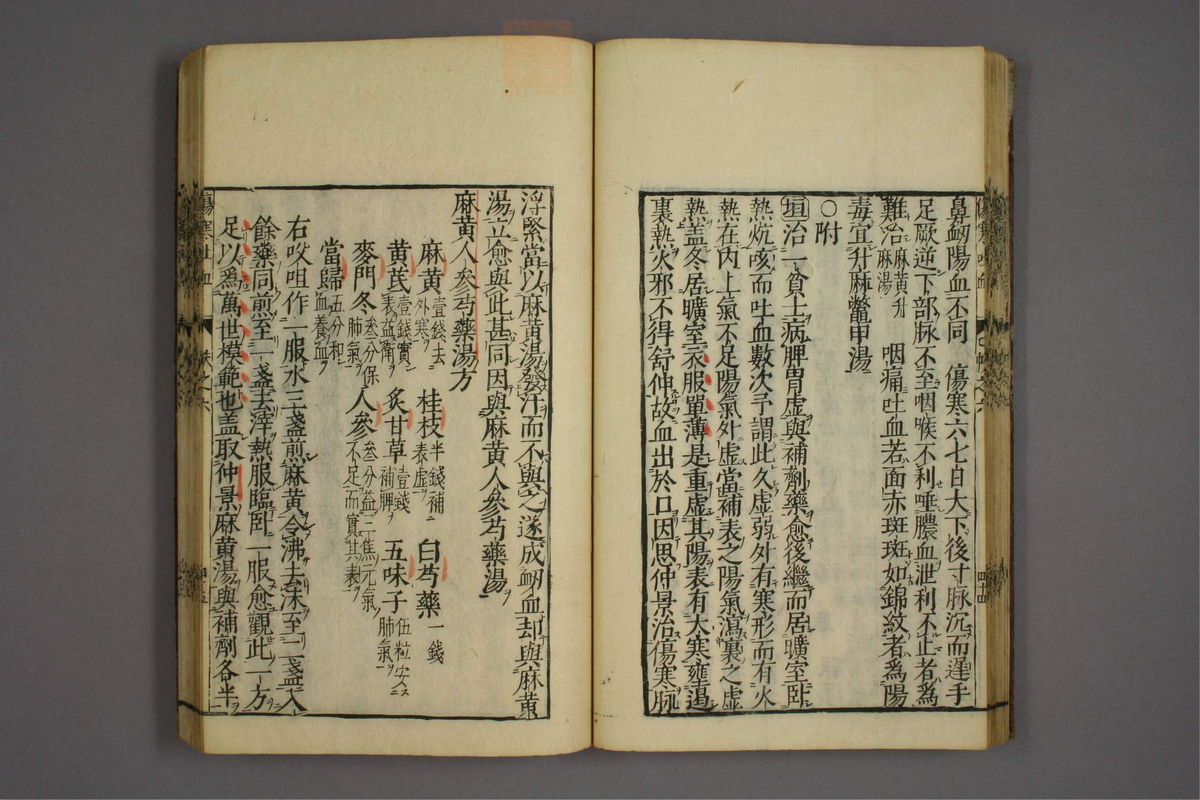 鼻衂陽血不同　傷寒六七日大下後寸脉沉而遲手
足厥逆下部脉不至咽喉不利唾膿血泄利不止者爲
難治麻黄升麻湯　咽痛吐血若面赤斑斑如錦紋者爲陽
毒宜升麻鼈甲湯
○附
垣治一貧士病脾胃虚與補劑藥愈後繼而居曠室卧
熱炕咳而吐血數次予謂此久虚弱外有寒形而有火
熱在内上氣不足陽氣外虚當補表之陽氣瀉裏之虚
熱盖冬居曠室衣服單薄是重虚其陽表有大寒壅遏
裏熱火邪不得舒伸故血出於口因思仲景治傷寒脉
浮緊當以麻黄湯發汗而不與之遂成衂血却與麻黄
湯立愈與此甚同因與麻黄人參芍藥湯
麻黄人參芍藥湯方
麻黄壹錢去外寒　桂枝半錢補表虚　白芍藥一錢
黄芪壹錢實表益衛　炙甘草壹錢補脾　五味子伍粒安肺氣
麥門冬叁分保肺氣　人參叁分益三焦元氣不足而實其表
當歸五分和血養血
右㕮咀作一服水三盞煎麻黄令沸去沫至二盞入
餘藥同煎至一盞去滓熱服臨卧一服愈觀此一方
足以爲萬世模範也盖取仲景麻黄湯與補劑各半